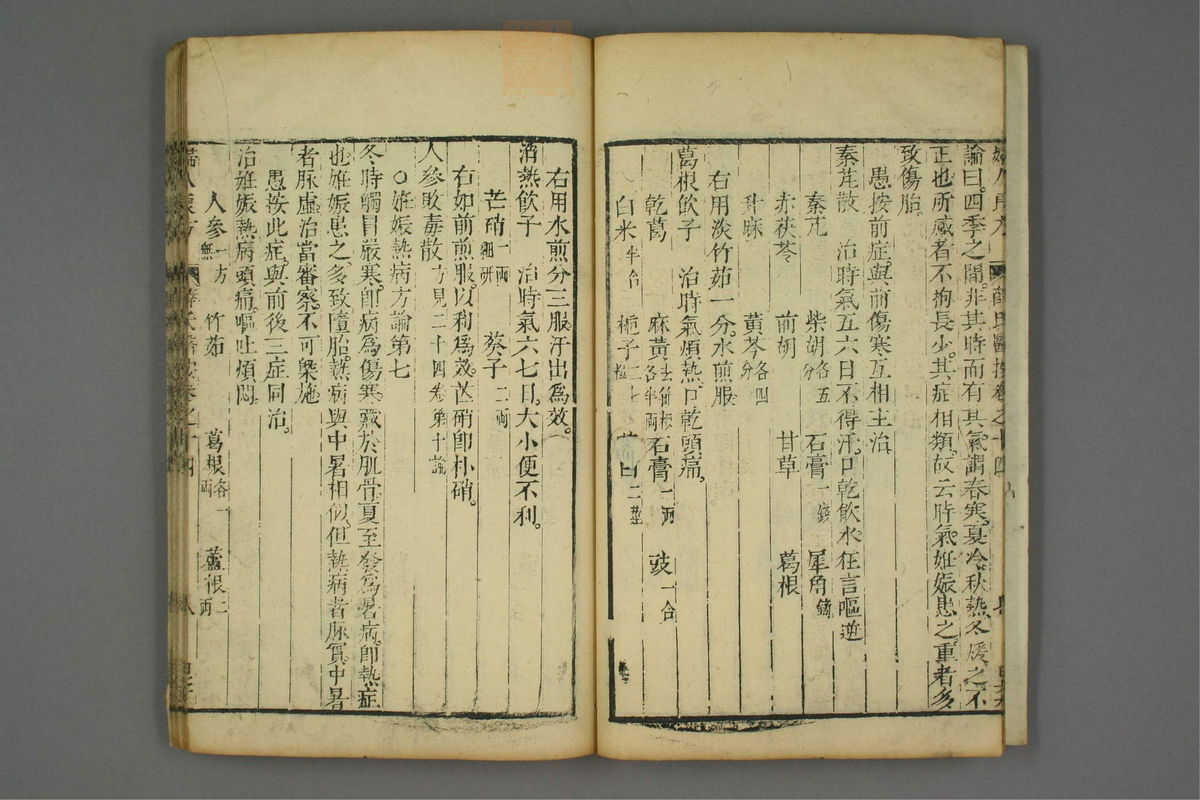 論曰。四季之間。非其時而有其氣。謂春寒。夏冷。秋熱。冬煖。之不
正也。所感者。不拘長少。其症相類。故云時氣。妊娠患之。重者多
致傷胎。
愚按前症。與前傷寒互相主治。
秦芃散 治時氣五六日不得汗。口乾飲水。狂言嘔逆
秦芃 柴胡各五分 石膏一錢 犀角鎊
赤茯苓 前胡 甘草 葛根
升麻 黃芩各四分
右用淡竹茹一分。水煎服
葛根飲子 治時氣煩熱。口乾頭痛。
乾葛 麻黃去節根各半兩 石膏一兩 豉一合
白米半合 梔子二七 白二莖
右用水煎分三服。汗出爲效。
消熱飲子 治時氣六七日。大小便不利。
芒硝一兩細研 葵子二兩
右如前煎服。以利爲效。芒硝卽朴硝。
人參敗毒散方見二十四卷第十論
○妊娠熱病方論第七
冬時觸冒嚴寒。卽病爲傷寒。藏於肌骨。夏至發爲暑病。卽熱症
也。妊娠患之。多致墮胎。熱病與中暑相似。但熱病者脉實。中暑
者脉虛。治當審察。不可槩施
愚按此症。與前後三症同治。
治妊娠熱病頭痛。嘔吐煩悶。
人參一方無 竹茹 葛根各一兩 蘆根二兩
婦人良方 薛氏醫按卷之十四 八